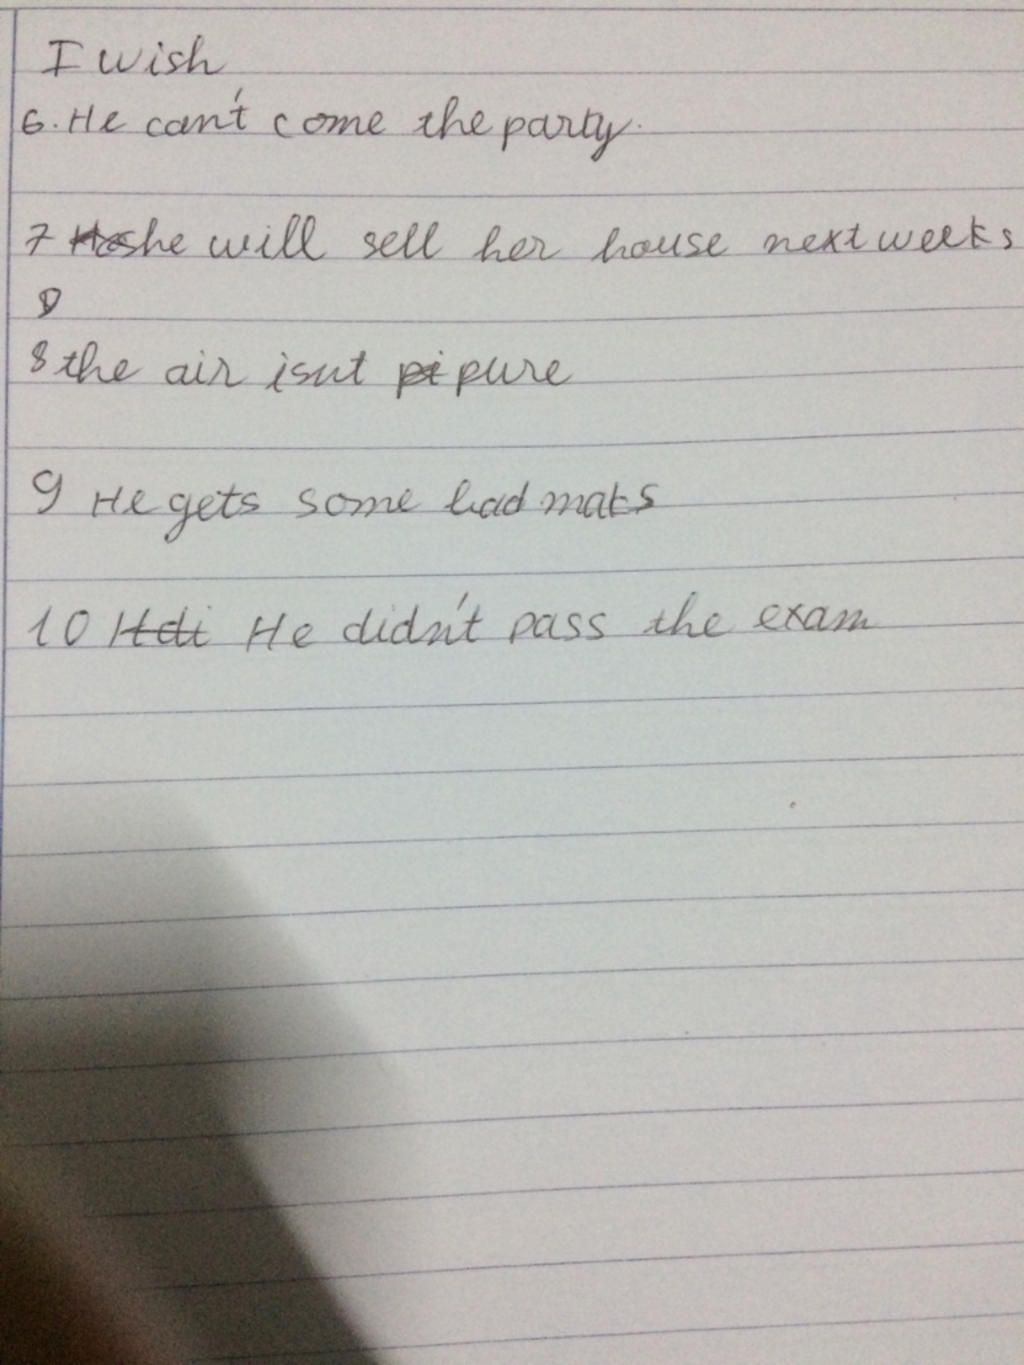 I wish
6. He can't come the party.
7 she will sell her house next weeks
8
8 the air isnt pure
9 He gets some bad maks
10 He didn't pass the exam